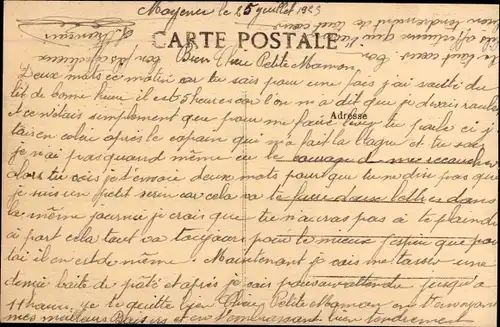 Mayence le 25 juillet 1923
CARTE POSTALE
Bien Chère Petite Maman,
Adresse
Deux mots ce matin car tu sais pour une fois j'ai sauté du
lit de bonne heure il est 5 heures car l'on m'a dit que je devais
et c'était simplement que pour me faire lever tu parle si j'
étais en colère après le copain qui m'a fait la blague et tu sais
je n'ai pas quand même eu le courage de me recoucher
Alors tu vois je t'envoie deux mots pour que tu ne dise pas que
je suis un petit serin car cela va te faire deux lettres dans
la même journée je crois que tu n'auras pas à te plaindre
à part cela tout va toujours pour le mieux j'espère que pour
toi il en est de même. Maintenant je vais me tasser une
demie boite de paté et après je vais pouvoir attendre jusqu'à
11 heures, je te quitte bien Chère Petite Maman en t'envoyant
mes meilleurs Baisers et en t'embrassant bien tendrement